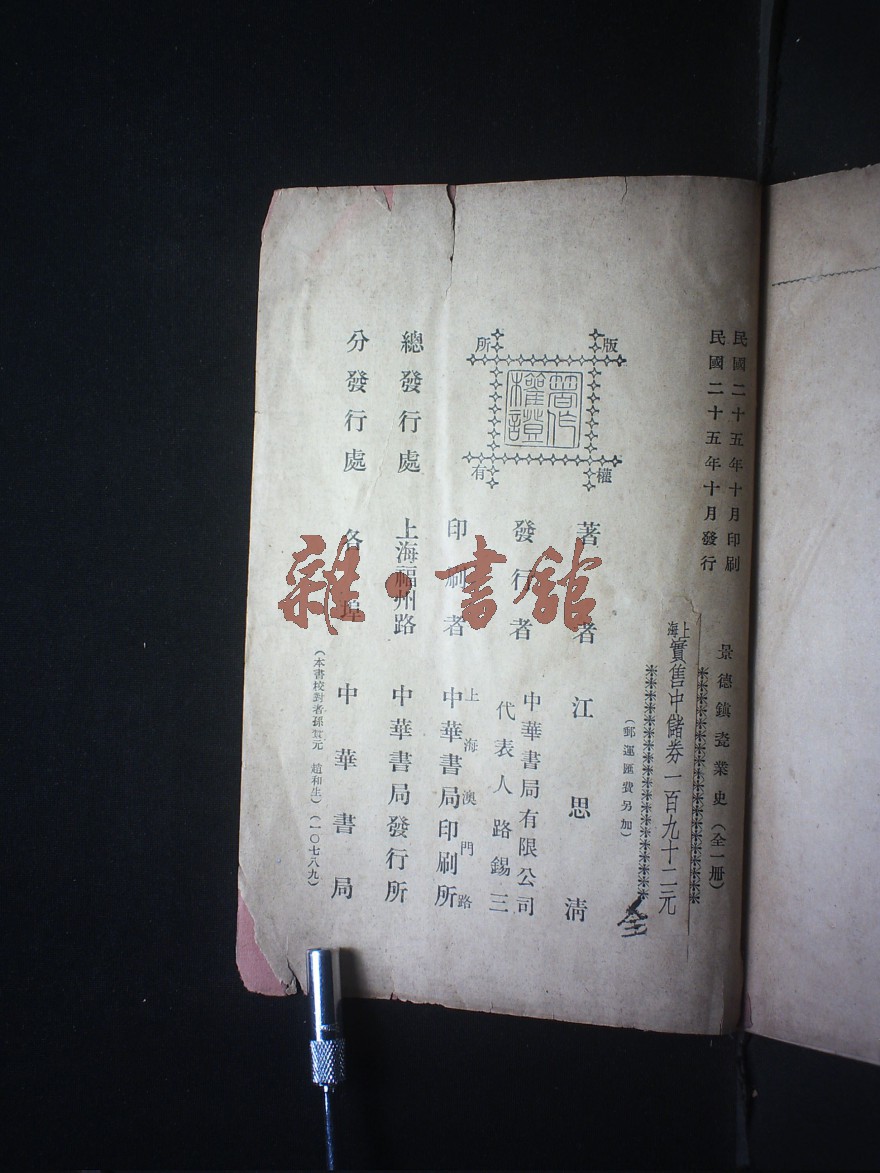 民國二十五年十月印刷
民國二十五年十月發行
景德鎮瓷業史（全一册）
上海實售中儲券一百九十二元
（郵運匯費另加）
版權所有
著作權證
著者 江思清
發行者 中華書局有限公司
代表人 路錫三
印刷者 上海澳門路
中華書局印刷所
總發行處 上海福州路 中華書局發行所
分發行處 各埠 中華書局
（本書校對者孫 元 趙和生）（一〇七八九）
雜·書館